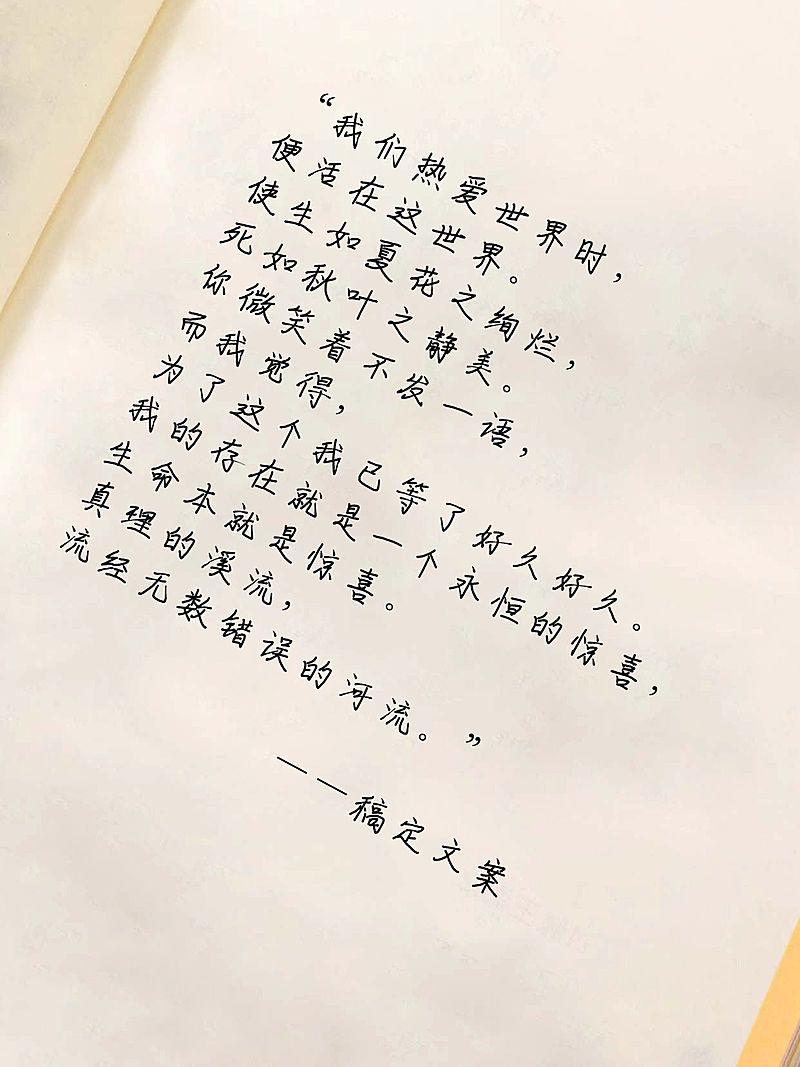 “我们热爱世界时，
便活在这世界。
使生如夏花之绚烂，
死如秋叶之静美。
你微笑着不发一语，
而我觉得，
为了这个我已等了好久好久。
我的存在就是一个永恒的惊喜，
生命本就是惊喜。
真理的溪流，
流经无数错误的河流。”
——稿定文案